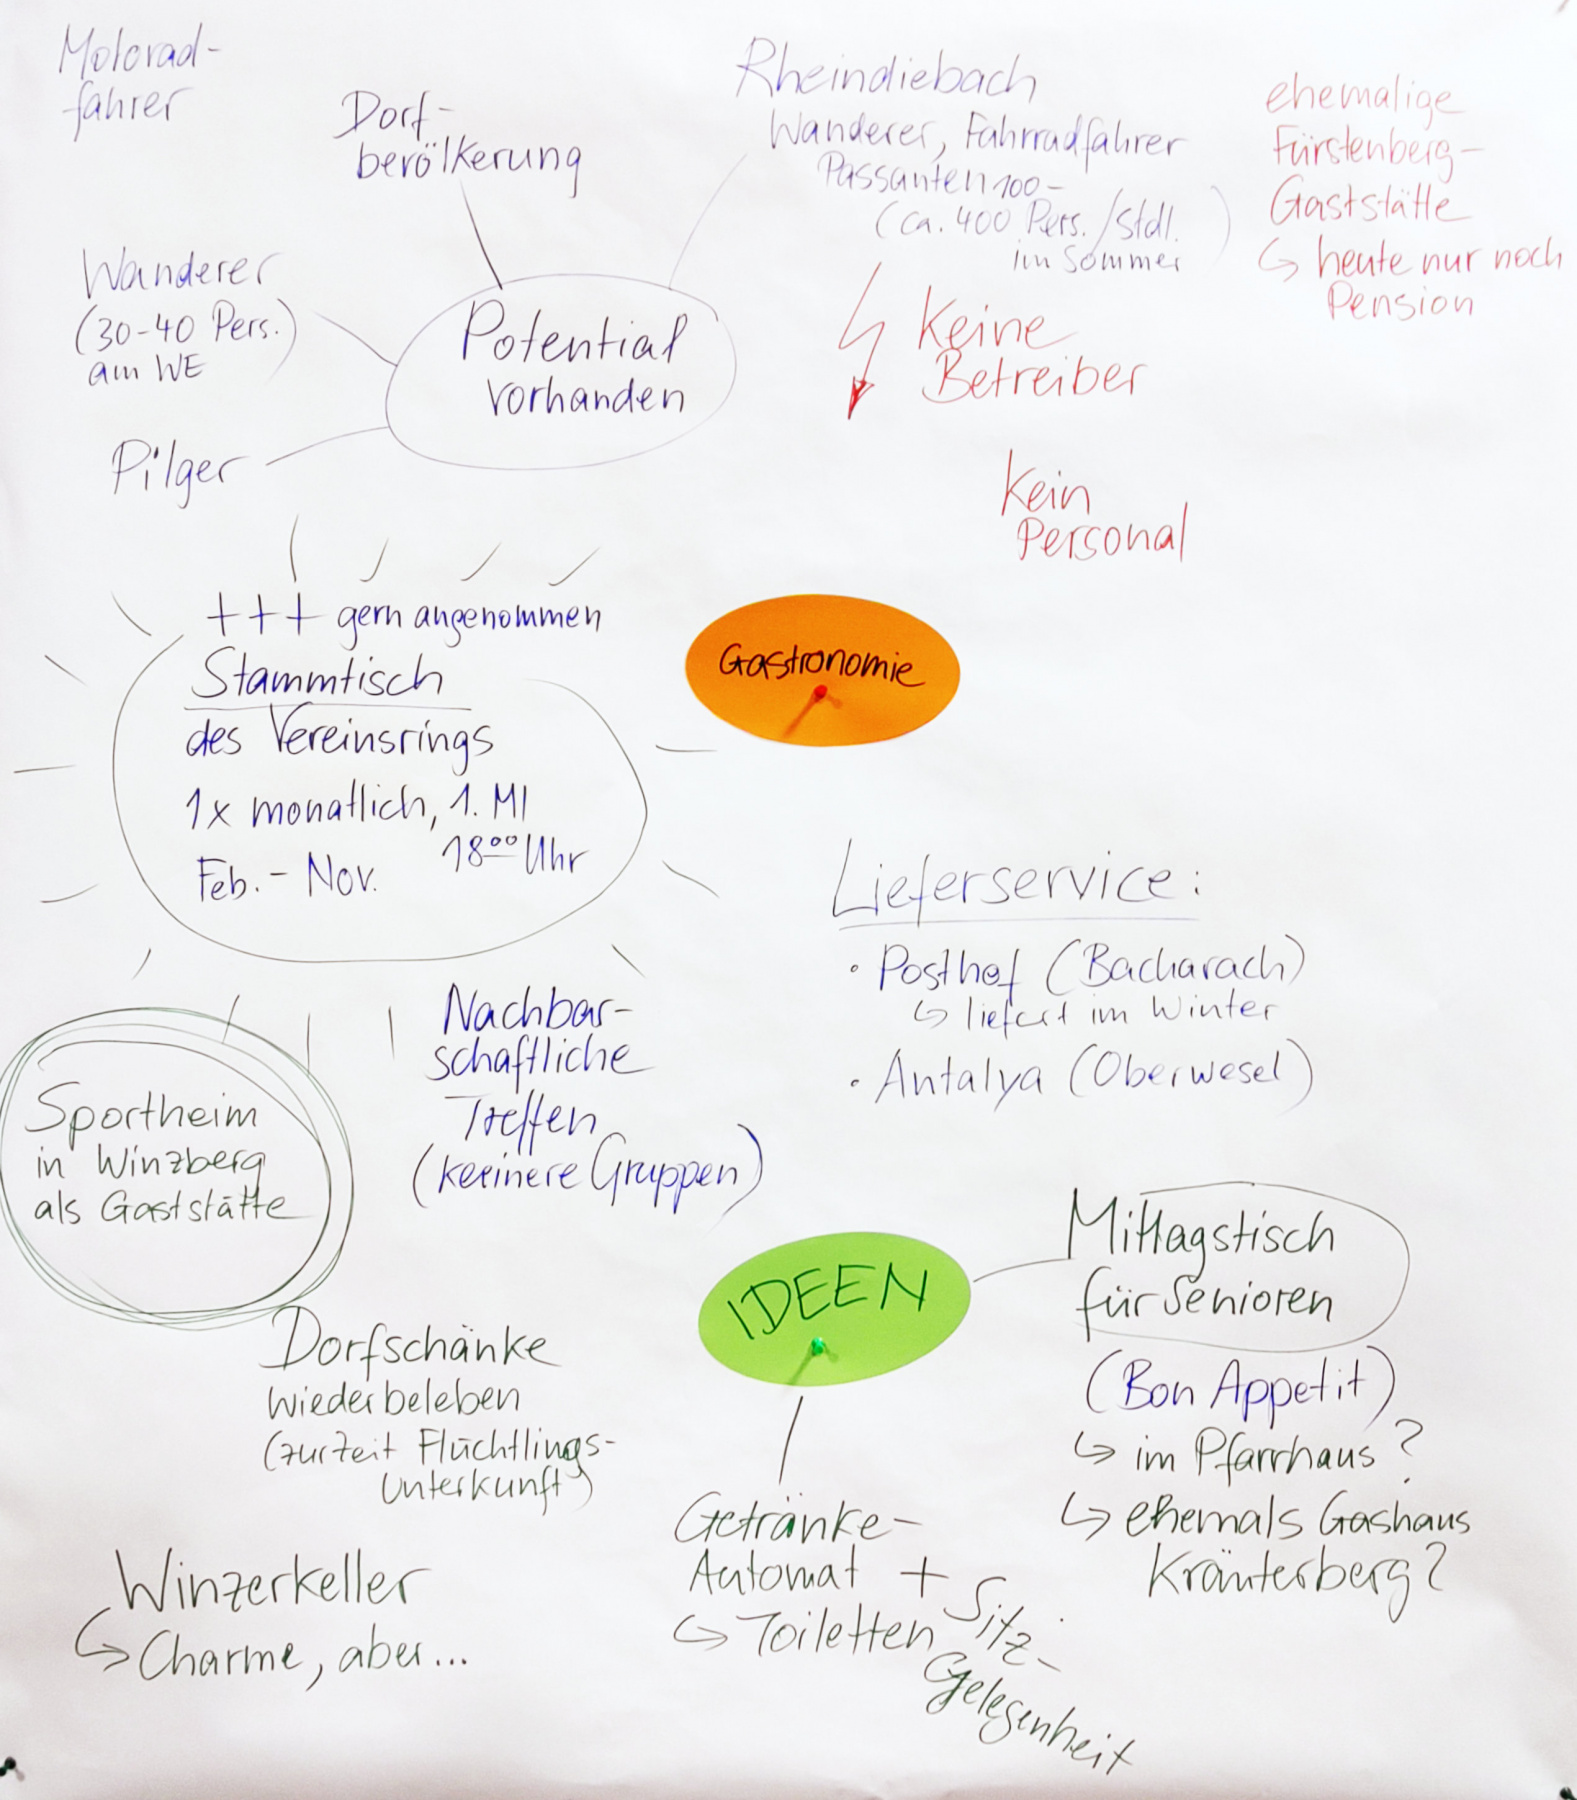 Motorad-
fahrer
Dorf-
bevölkerung
Rheindiebach
Wanderer, Fahrradfahrer
Passanten 100-
(ca. 400 Pers./Stdl.
im Sommer)
ehemalige
Fürstenberg-
Gaststätte
↳ heute nur noch
Pension
Wanderer
(30-40 Pers.)
am WE
Potential
vorhanden
Pilger
Keine
Betreiber
Kein
Personal
+++ gern angenommen
Stammtisch
des Vereinsrings
1x monatlich, 1. MI
18⁰⁰ Uhr
Feb. - Nov.
Gastronomie
Lieferservice:
• Posthof (Bacharach)
↳ liefert im Winter
• Antalya (Oberwesel)
Nachbar-
schaftliche
Treffen
(keeinere Gruppen)
Sportheim
in Winzberg
als Gaststätte
IDEEN
Mittagstisch
für Senioren
(Bon Appetit)
↳ im Pfarrhaus?
↳ ehemals Gashaus
Kräuterberg?
Dorfschänke
wiederbeleben
(zurzeit Flüchtlings-
Unterkunft)
Getränke-
Automat + Sitz-
Gelegenheit
↳ Toiletten
Winzerkeller
↳ Charme, aber...